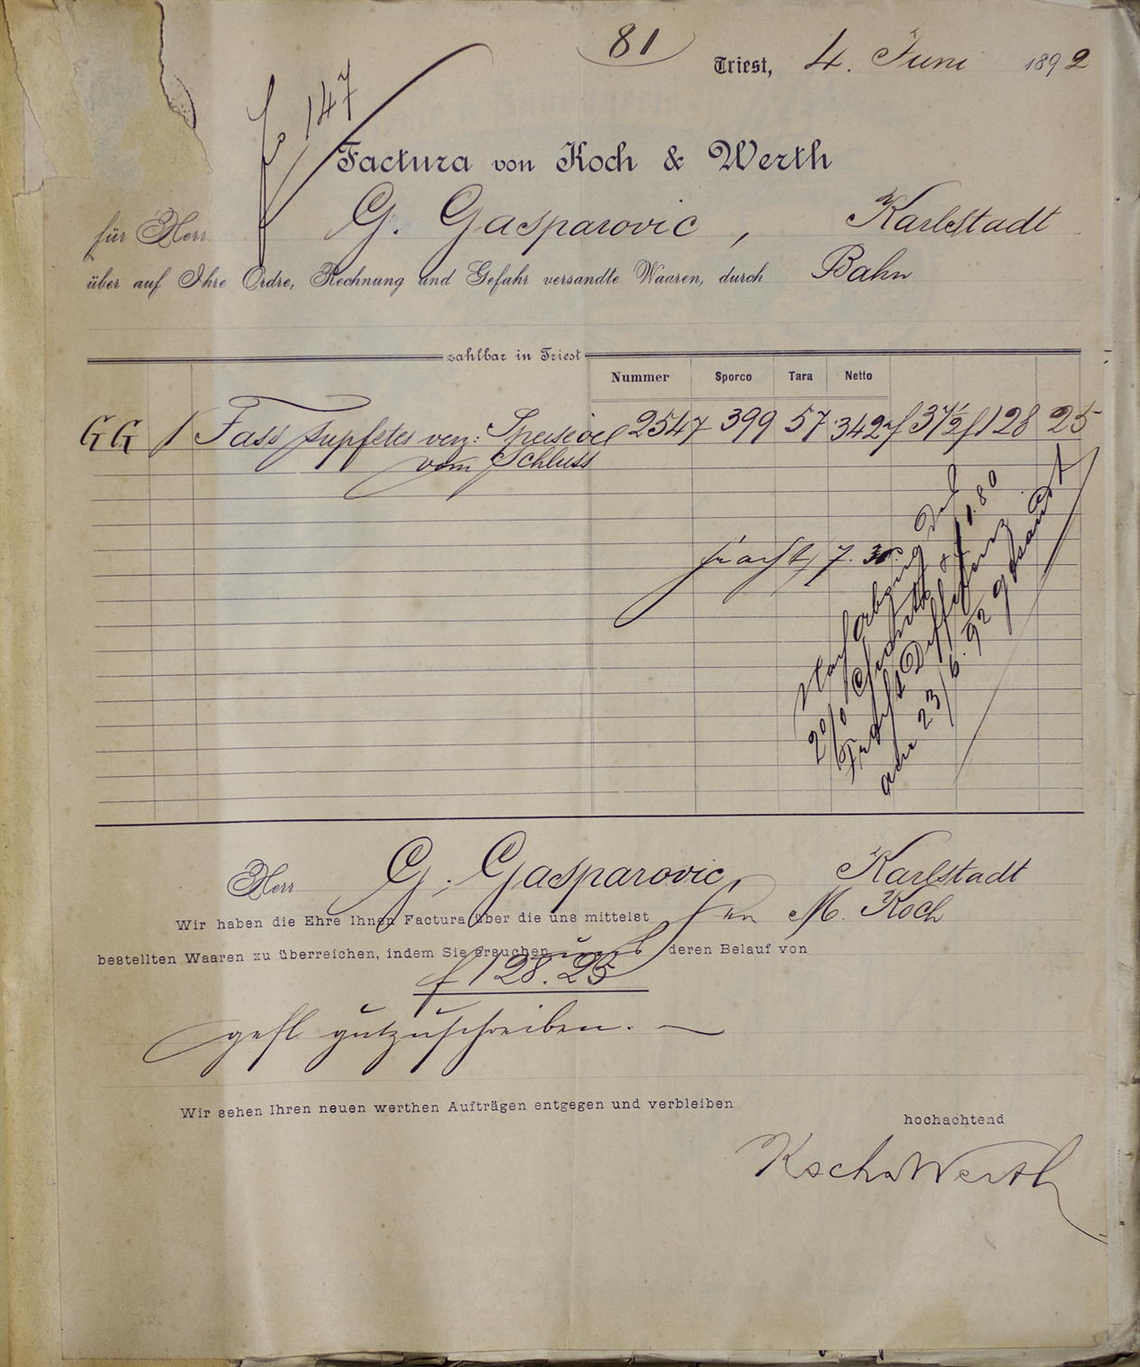 81
Triest, 4. Juni 1892
f 147
Factura von Koch & Werth
für Herr G. Gasparovic, Karlstadt
über auf Ihre Ordre, Rechnung und Gefahr versandte Waaren, durch Bahn
zahlbar in Triest
Nummer Sporco Tara Netto
GG 1 Fass supfeles ven: Speiseoel 2547 399 57 342 f 37½ f 128 25
vom Schluss
fracht 7.30
nach Abzug
2% Sconto f 1.80
Fracht Differenz
am 23/6.92 gesandt
Herr G. Gasparovic, Karlstadt
Wir haben die Ehre Ihnen Factura über die uns mittelst M. Koch
bestellten Waaren zu überreichen, indem Sie ersuchen uns deren Belauf von
f 128.25
gefl gutzuschreiben.
Wir sehen Ihren neuen werthen Aufträgen entgegen und verbleiben
hochachtend
Koch & Werth